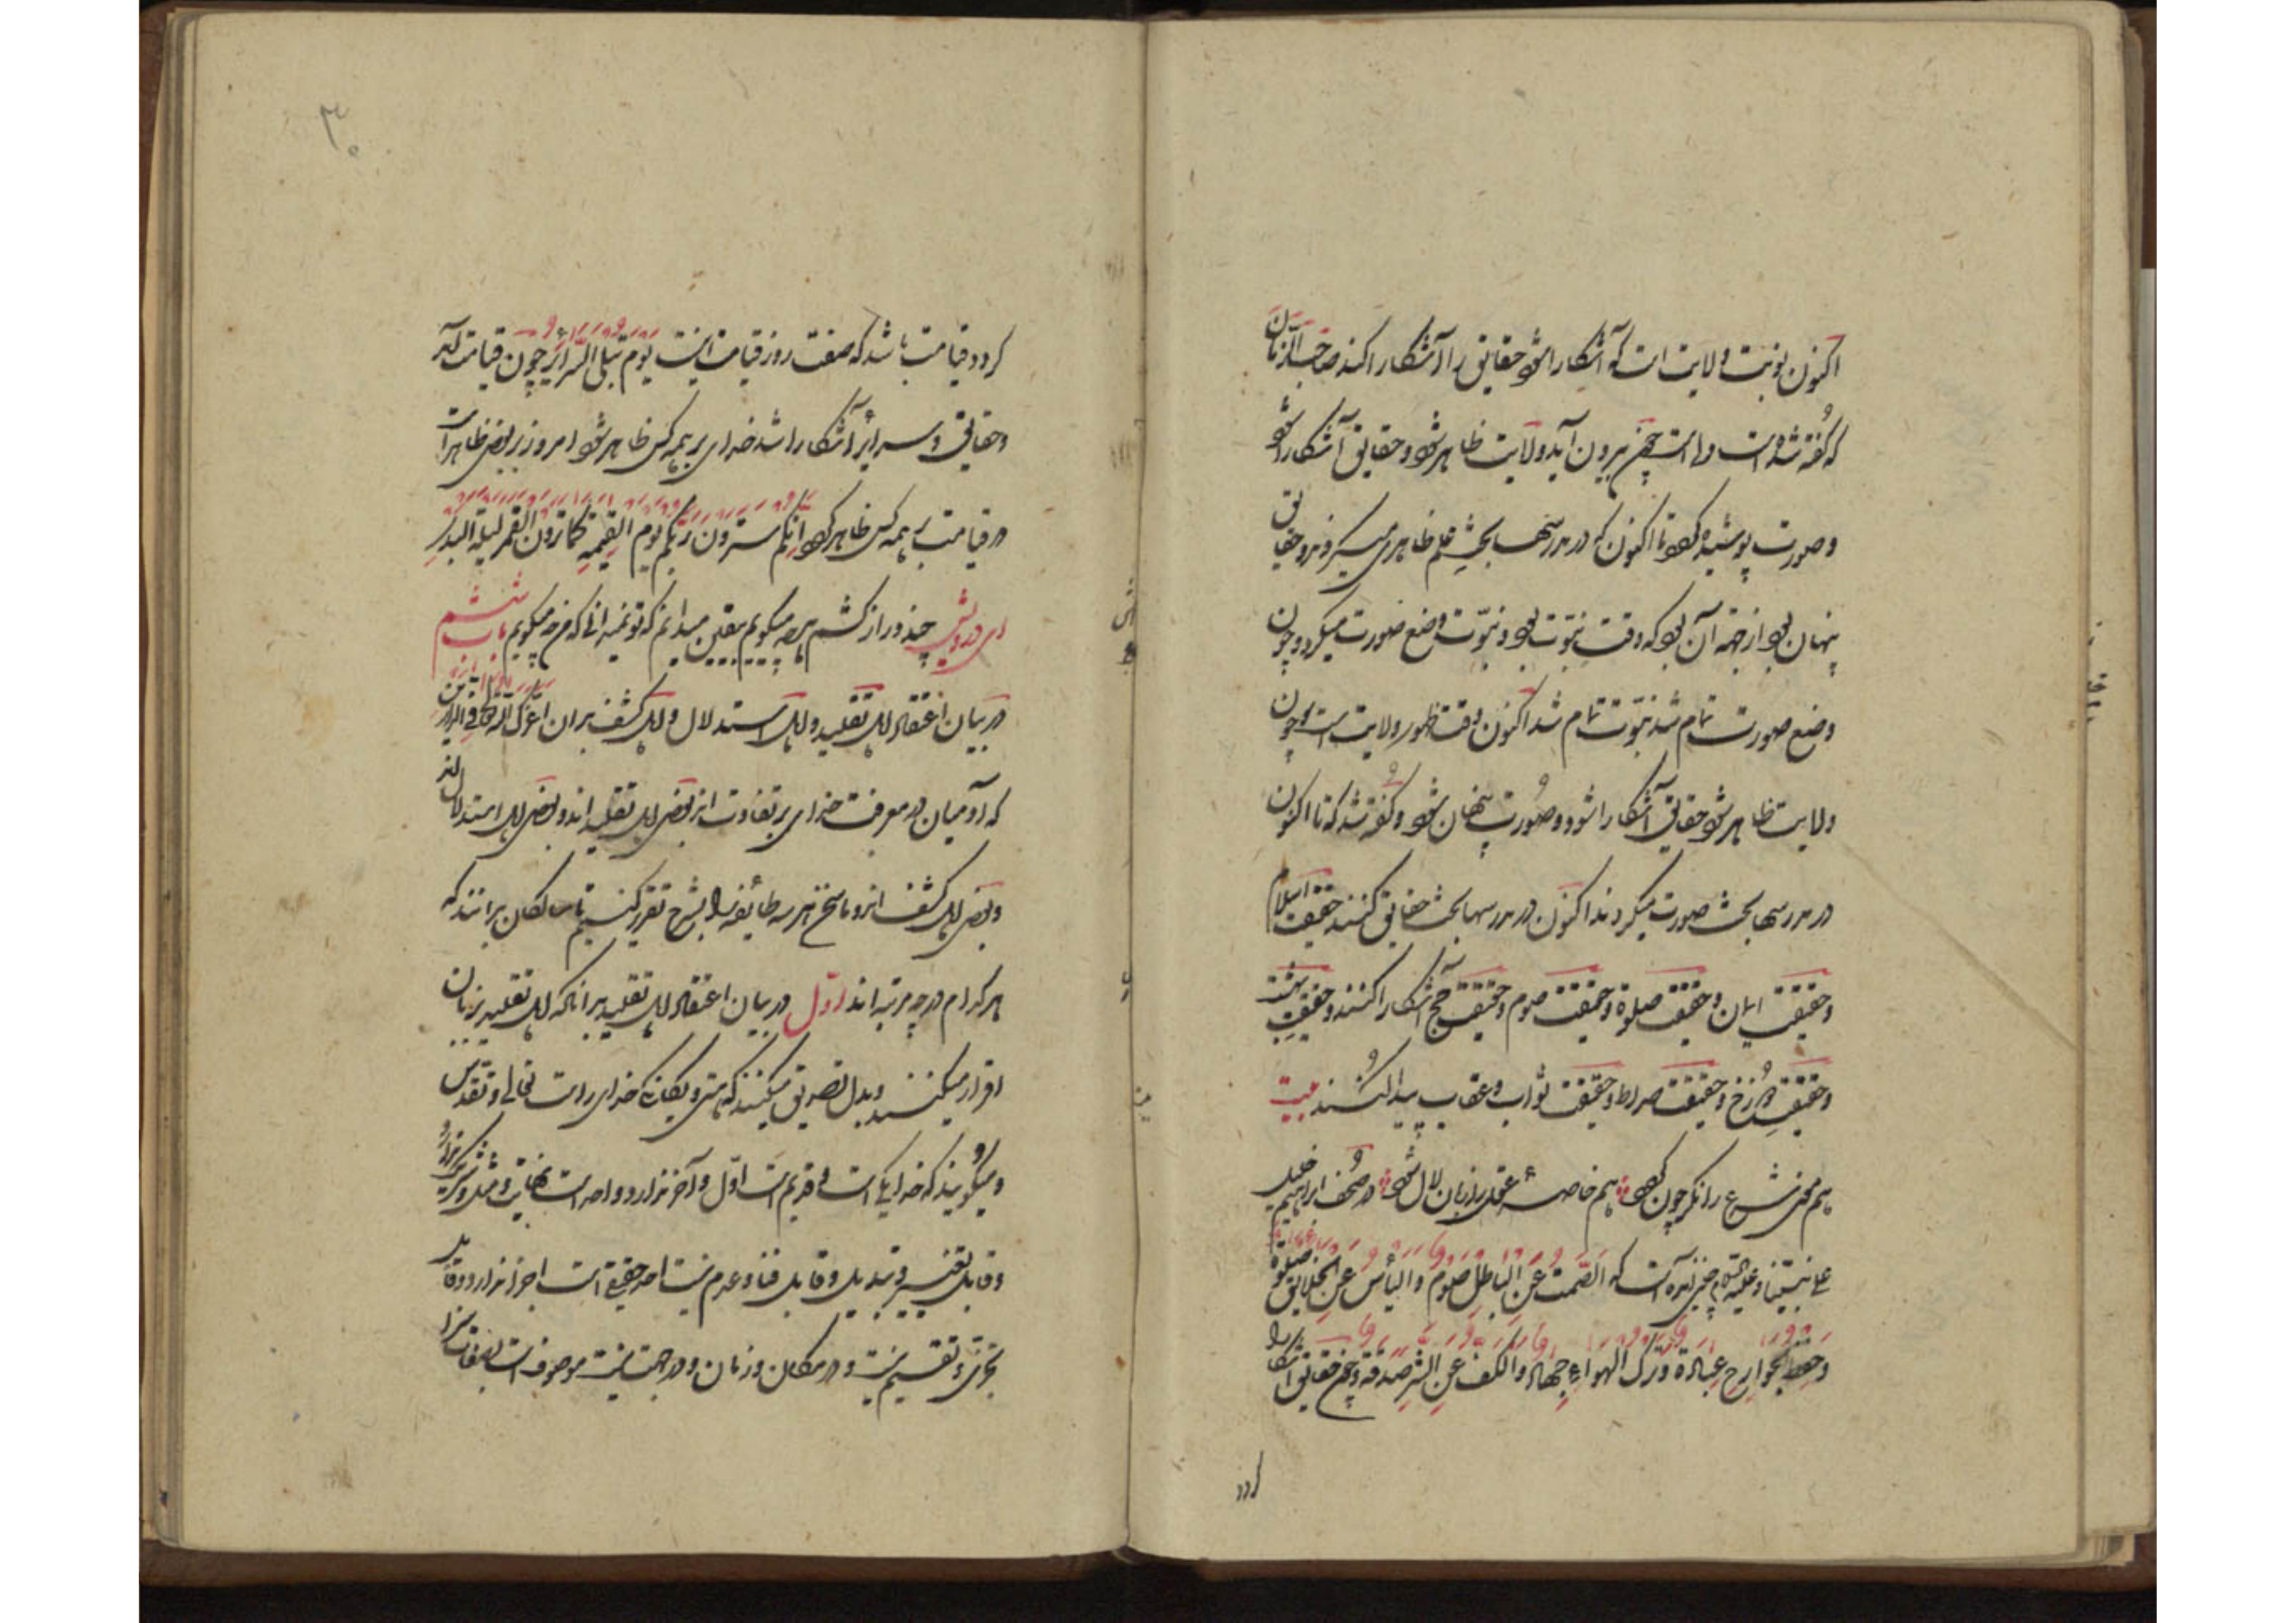 اکنون نوبت ولایت است که آشکارا شود حقایق را آشکارا کند صاحب الزمان
که گفته شده است ولی است چون بیرون آید ولایت ظاهر شود و حقایق آشکارا شود
و صورت پوشیده گردد تا اکنون که در مدرسها بحث علم ظاهر می‌کردند و حقایق
پنهان بود از جهة آن بود که وقت نبوّت بود و نبوّت وضع صورت میکرد و چون
وضع صورت تمام شد نبوّت تمام شد اکنون وقت ظهور ولایت است و چون
ولایت ظاهر شود حقایق آشکارا شود و صورت پنهان شود و گفته شد که تا اکنون
در مدرسها بحث صورت میکردند اکنون در مدرسها بحث حقایق کنند حقیقت اسلام
و حقیقت ایمان و حقیقت صلوة و حقیقت صوم و حقیقت حج آشکارا کنند و حقیقت بهشت
و حقیقت دوزخ و حقیقت صراط و حقیقت ثواب و عقاب پیدا کنند بیت
هم مفتی شرع را جگر خون گردد هم خاصهٔ عقل را زبان لال شود در صُحُف ابراهیم خلیل
علی نبیّنا و علیه السلام چنین آمده است که الصّمت عن الباطِلِ صَوْم والیأس عن الخلایق صلوة
و حفظ الجوارح عبادة و ترک الهواءِ جهاد والکف عن الشر صدقة و چون حقایق آشکارا
گردد
۳۰
گردد قیامت باشد که صفت روز قیامت اینست یوم تبلی السّرائر چون قیامت آید
و حقایق و سرایر آشکارا شد خدای بر همه کس ظاهر شود امروز بر بعضی ظاهر است
در قیامت بر همه کس ظاهر گردد انّکم سترون ربّکم یوم القیمة کما ترون القمر لیلة البدر
ای درویش چند دراز کشم هرچه میگویم بیقین میدانم که تو نمیدانی که من چه میگویم باب ششم
در بیان اعتقاد اهل تقلید و اهل استدلال و اهل کشف بدان اعزّک الله تعالی فی الدارین
که آدمیان در معرفت خدای بر تفاوت اند بعضی اهل تقلید اند و بعضی اهل استدلال اند
و بعضی اهل کشف اند و ما سخن هر سه طایفه را بشرح تقریر کنیم تا سالکان بدانند که
هر کدام در چه مرتبه اند اوّل در بیان اعتقاد اهل تقلید بدانکه اهل تقلید بزبان
اقرار میکنند و بدل تصدیق میکنند که هستی و یگانگی خدای راست تعالی و تقدّس
و میگویند که خدا یکی است و قدیم است اوّل و آخر ندارد و واحد است نهایت و مثل و شریک ندارد
و قابل تغییر و تبدیل و قابل فنا و عدم نیست احد حقیقی است اجزا ندارد و قابل
تجزی و تقسیم نیست و در مکان و زمان و در جهت نیست موصوف است بصفات سزا